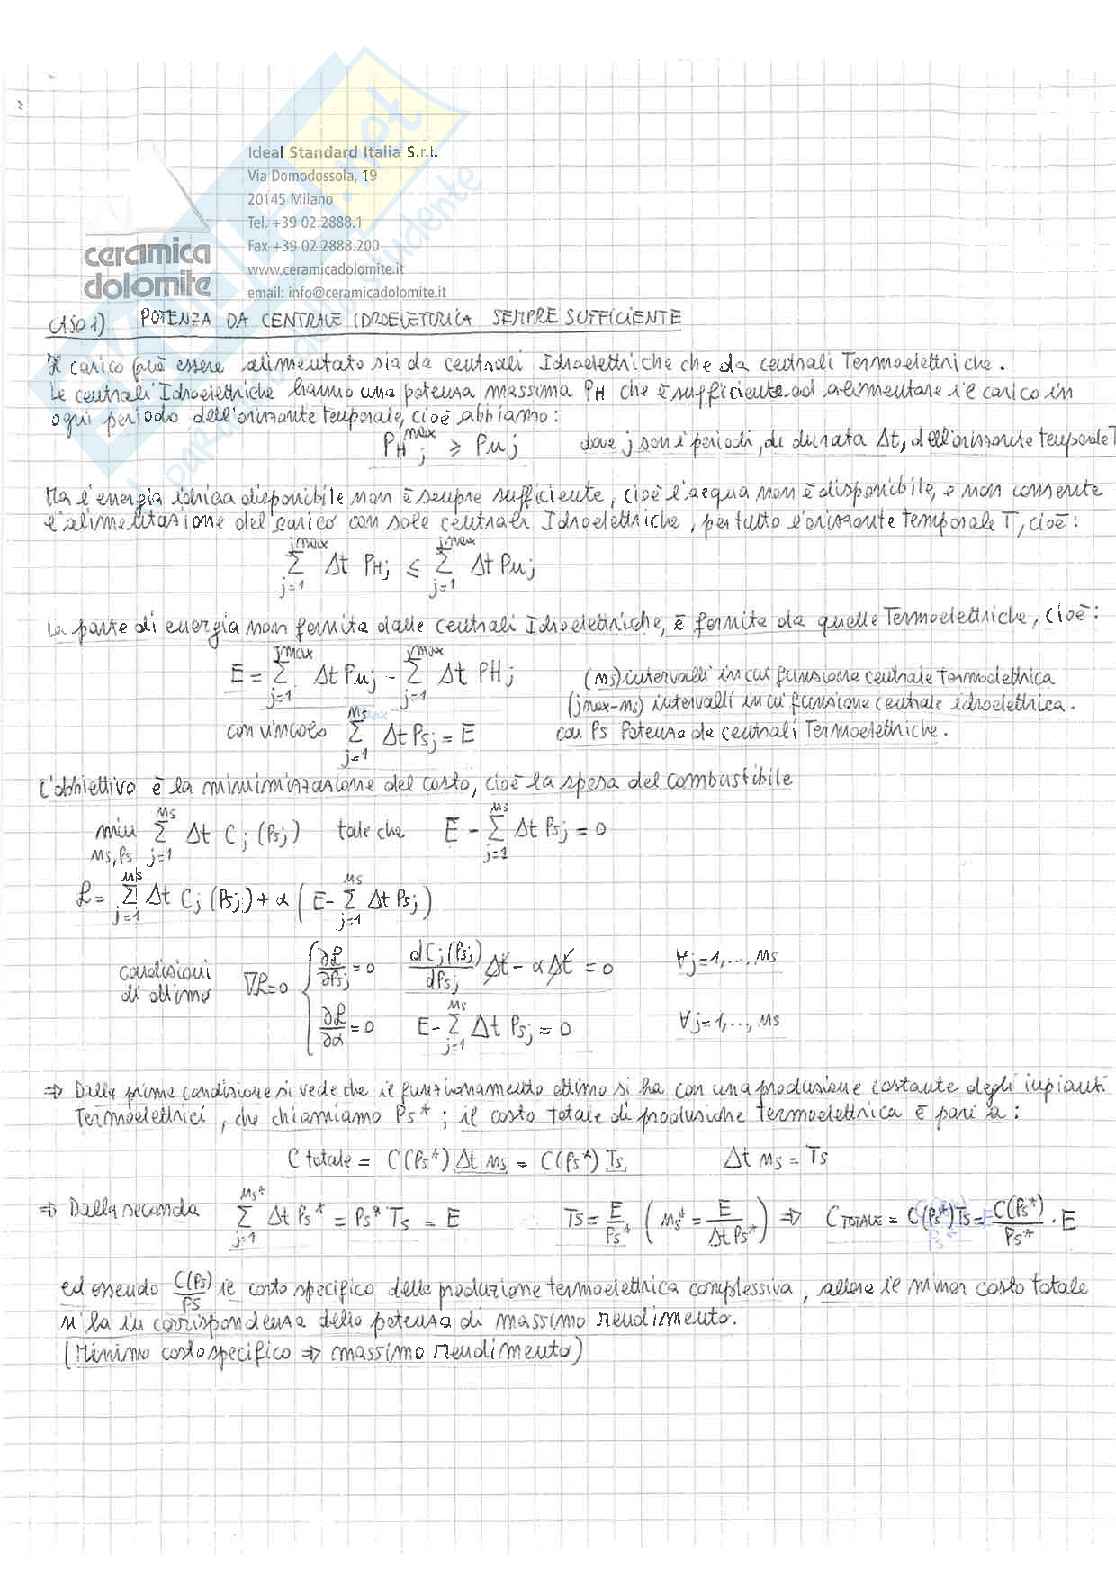 Ideal Standard Italia S.r.l.
Via Domodossola, 19
20145 Milano
Tel. +39 02 2888.1
Fax +39 02 2883.200
www.ceramicadolomite.it
email: info@ceramicadolomite.it
ceramica
dolomite
CASO 1) POTENZA DA CENTRALE IDROELETTORICA SEMPRE SUFFICIENTE
Il carico può essere alimentato sia da centrali Idroelettriche che da centrali Termoelettriche.
Le centrali Idroelettriche hanno una potenza massima PH che è sufficiente ad alimentare il carico in
ogni periodo dell'orizzonte temporale, cioè abbiamo:
PHj^max ≥ Puj dove j sono i periodi, di durata Δt, dell'orizzonte temporale T
Ma l'energia idrica disponibile non è sempre sufficiente, cioè l'acqua non è disponibile, e non consente
l'alimentazione del carico con sole centrali Idroelettriche, per tutto l'orizzonte temporale T, cioè:
Σ_{j=1}^{jmax} Δt PHj ≤ Σ_{j=1}^{jmax} Δt Puj
La parte di energia non fornita dalle centrali Idroelettriche, è fornita da quelle Termoelettriche, cioè:
E = Σ_{j=1}^{jmax} Δt Puj - Σ_{j=1}^{jmax} Δt PHj (ns) intervalli in cui funzione centrale termoelettrica
(jmax-ns) intervalli in cui funzione centrale idroelettrica.
con vincolo Σ_{j=1}^{ns} Δt Psj = E con Ps Potenza da centrali Termoelettriche.
L'obbiettivo è la minimizzazione del costo, cioè la spesa del combustibile
min_{ns,Ps} Σ_{j=1}^{ns} Δt Cj (Psj) tale che E - Σ_{j=1}^{ns} Δt Psj = 0
ℒ = Σ_{j=1}^{ns} Δt Cj (Psj) + α (E - Σ_{j=1}^{ns} Δt Psj)
condizioni di ottimo ∇ℒ=0 { ∂ℒ/∂Psj = 0 dCj(Psj)/dPsj Δt - α Δt = 0 ∀j=1,...,ns
∂ℒ/∂α = 0 E - Σ_{j=1}^{ns} Δt Psj = 0 ∀j=1,...,ns
⇒ Dalla prima condizione si vede che il funzionamento ottimo si ha con una produzione costante degli impianti
Termoelettrici, che chiamiamo Ps*; il costo totale di produzione termoelettrica è pari a:
C totale = C(Ps*) Δt ns = C(Ps*) Ts Δt ns = Ts
⇒ Dalla seconda Σ_{j=1}^{ns*} Δt Ps* = Ps* Ts = E Ts = E/Ps* (ns* = E/(Δt Ps*)) ⇒ C TOTALE = C(Ps*) Ts = C(Ps*)/Ps* · E
ed essendo C(Ps)/Ps il costo specifico della produzione termoelettrica complessiva, allora il minor costo totale
si ha in corrispondenza della potenza di massimo rendimento.
(Minimo costo specifico ⇒ massimo rendimento)